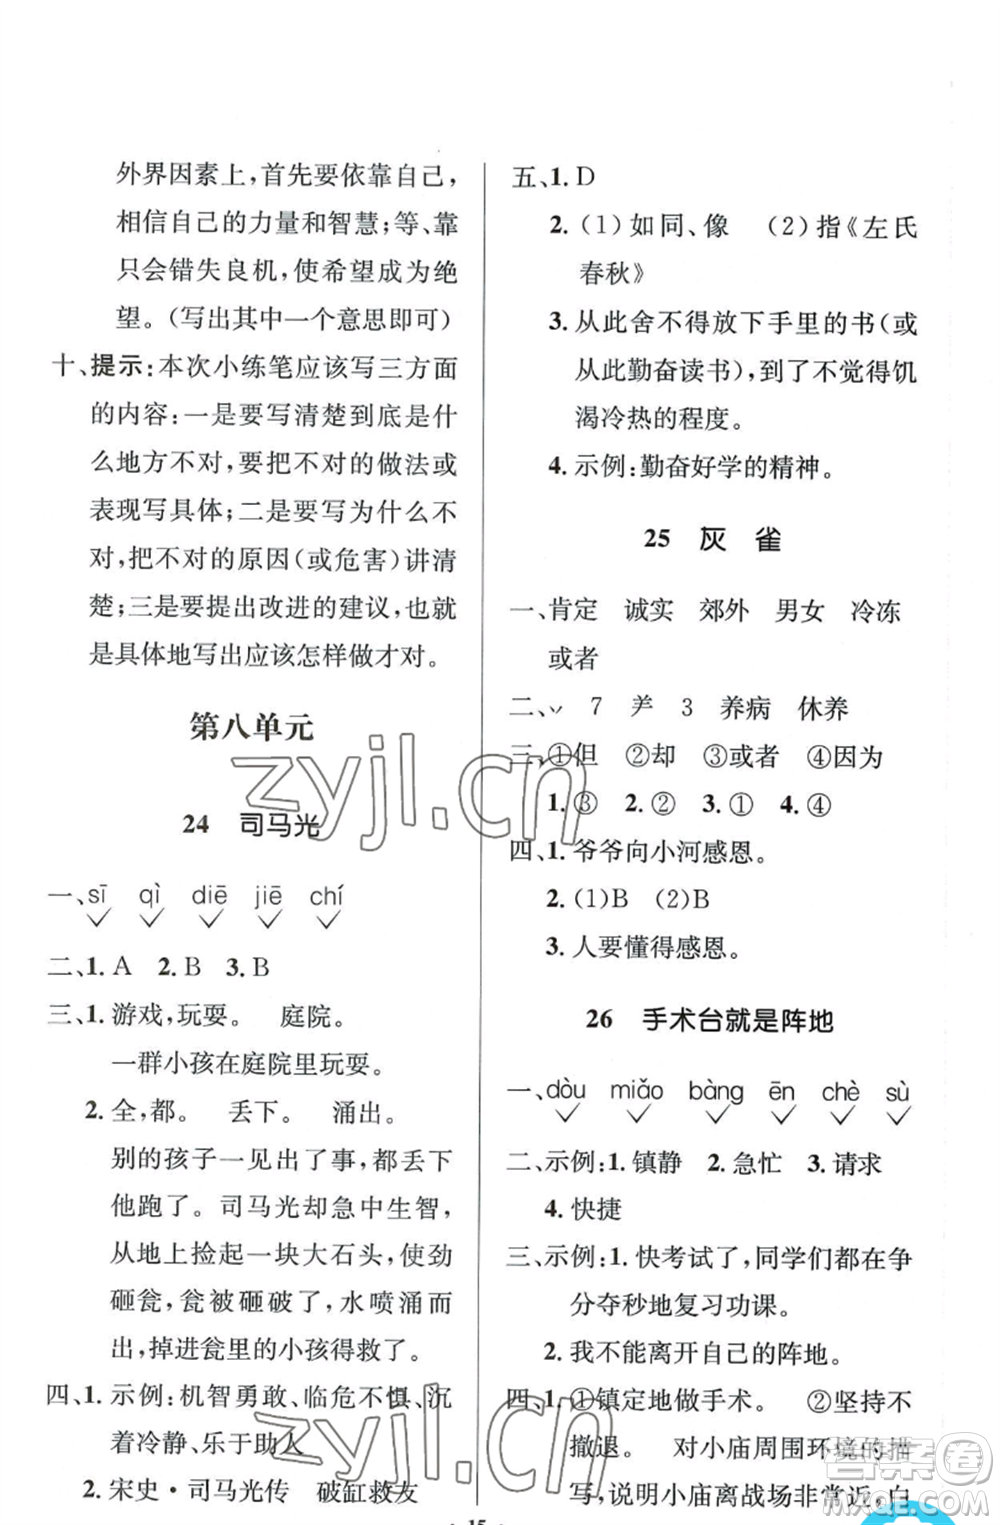 外界因素上，首先要依靠自己，
相信自己的力量和智慧；等、靠
只会错失良机，使希望成为绝
望。（写出其中一个意思即可）
十、提示：本次小练笔应该写三方面
的内容：一是要写清楚到底是什
么地方不对，错误的做法或
表现写具体；二是要写为什么不
对，把不对的原因（或危害）讲清
楚；三是要提出改进的建议，也就
是具体地写出应该怎样做才对。
第八单元
24 司马光
一、sī qì diē jiē chí
二、1. A 2. B 3. B
三、1. 游戏，玩耍。 庭院。
一群小孩在庭院里玩耍。
2. 全，都。 丢下。 涌出。
别的孩子一见出了事，都丢下
他跑了。司马光却急中生智，
从地上捡起一块大石头，使劲
砸瓮，瓮被砸破了，水喷涌而
出，掉进瓮里的小孩得救了。
四、1. 示例：机智勇敢、临危不惧、沉
着冷静、乐于助人
2. 宋史·司马光传 破缸救友
五、1. D
2. (1)如同、像 (2)指《左氏
春秋》
3. 从此舍不得放下手里的书（或
从此勤奋读书），到了不觉得饥
渴冷热的程度。
4. 示例：勤奋好学的精神。
25 灰 雀
一、肯定 诚实 郊外 男女 冷冻
或者
二、丷 7 䒑 3 养病 休养
三、①但 ②却 ③或者 ④因为
1. ③ 2. ② 3. ① 4. ④
四、1. 爷爷向小河感恩。
2. (1)B (2)B
3. 人要懂得感恩。
26 手术台就是阵地
一、dòu miǎo bàng ēn chè sù
二、示例：1. 镇静 2. 急忙 3. 请求
4. 快捷
三、示例：1. 快考试了，同学们都在争
分夺秒地复习功课。
2. 我不能离开自己的阵地。
四、1. ①镇定地做手术。 ②坚持不
撤退。 对小庙周围环境的描
写，说明小庙离战场非常近，白
15
zyjl.cn
zyjl.cn
答案圈
MXQE.COM